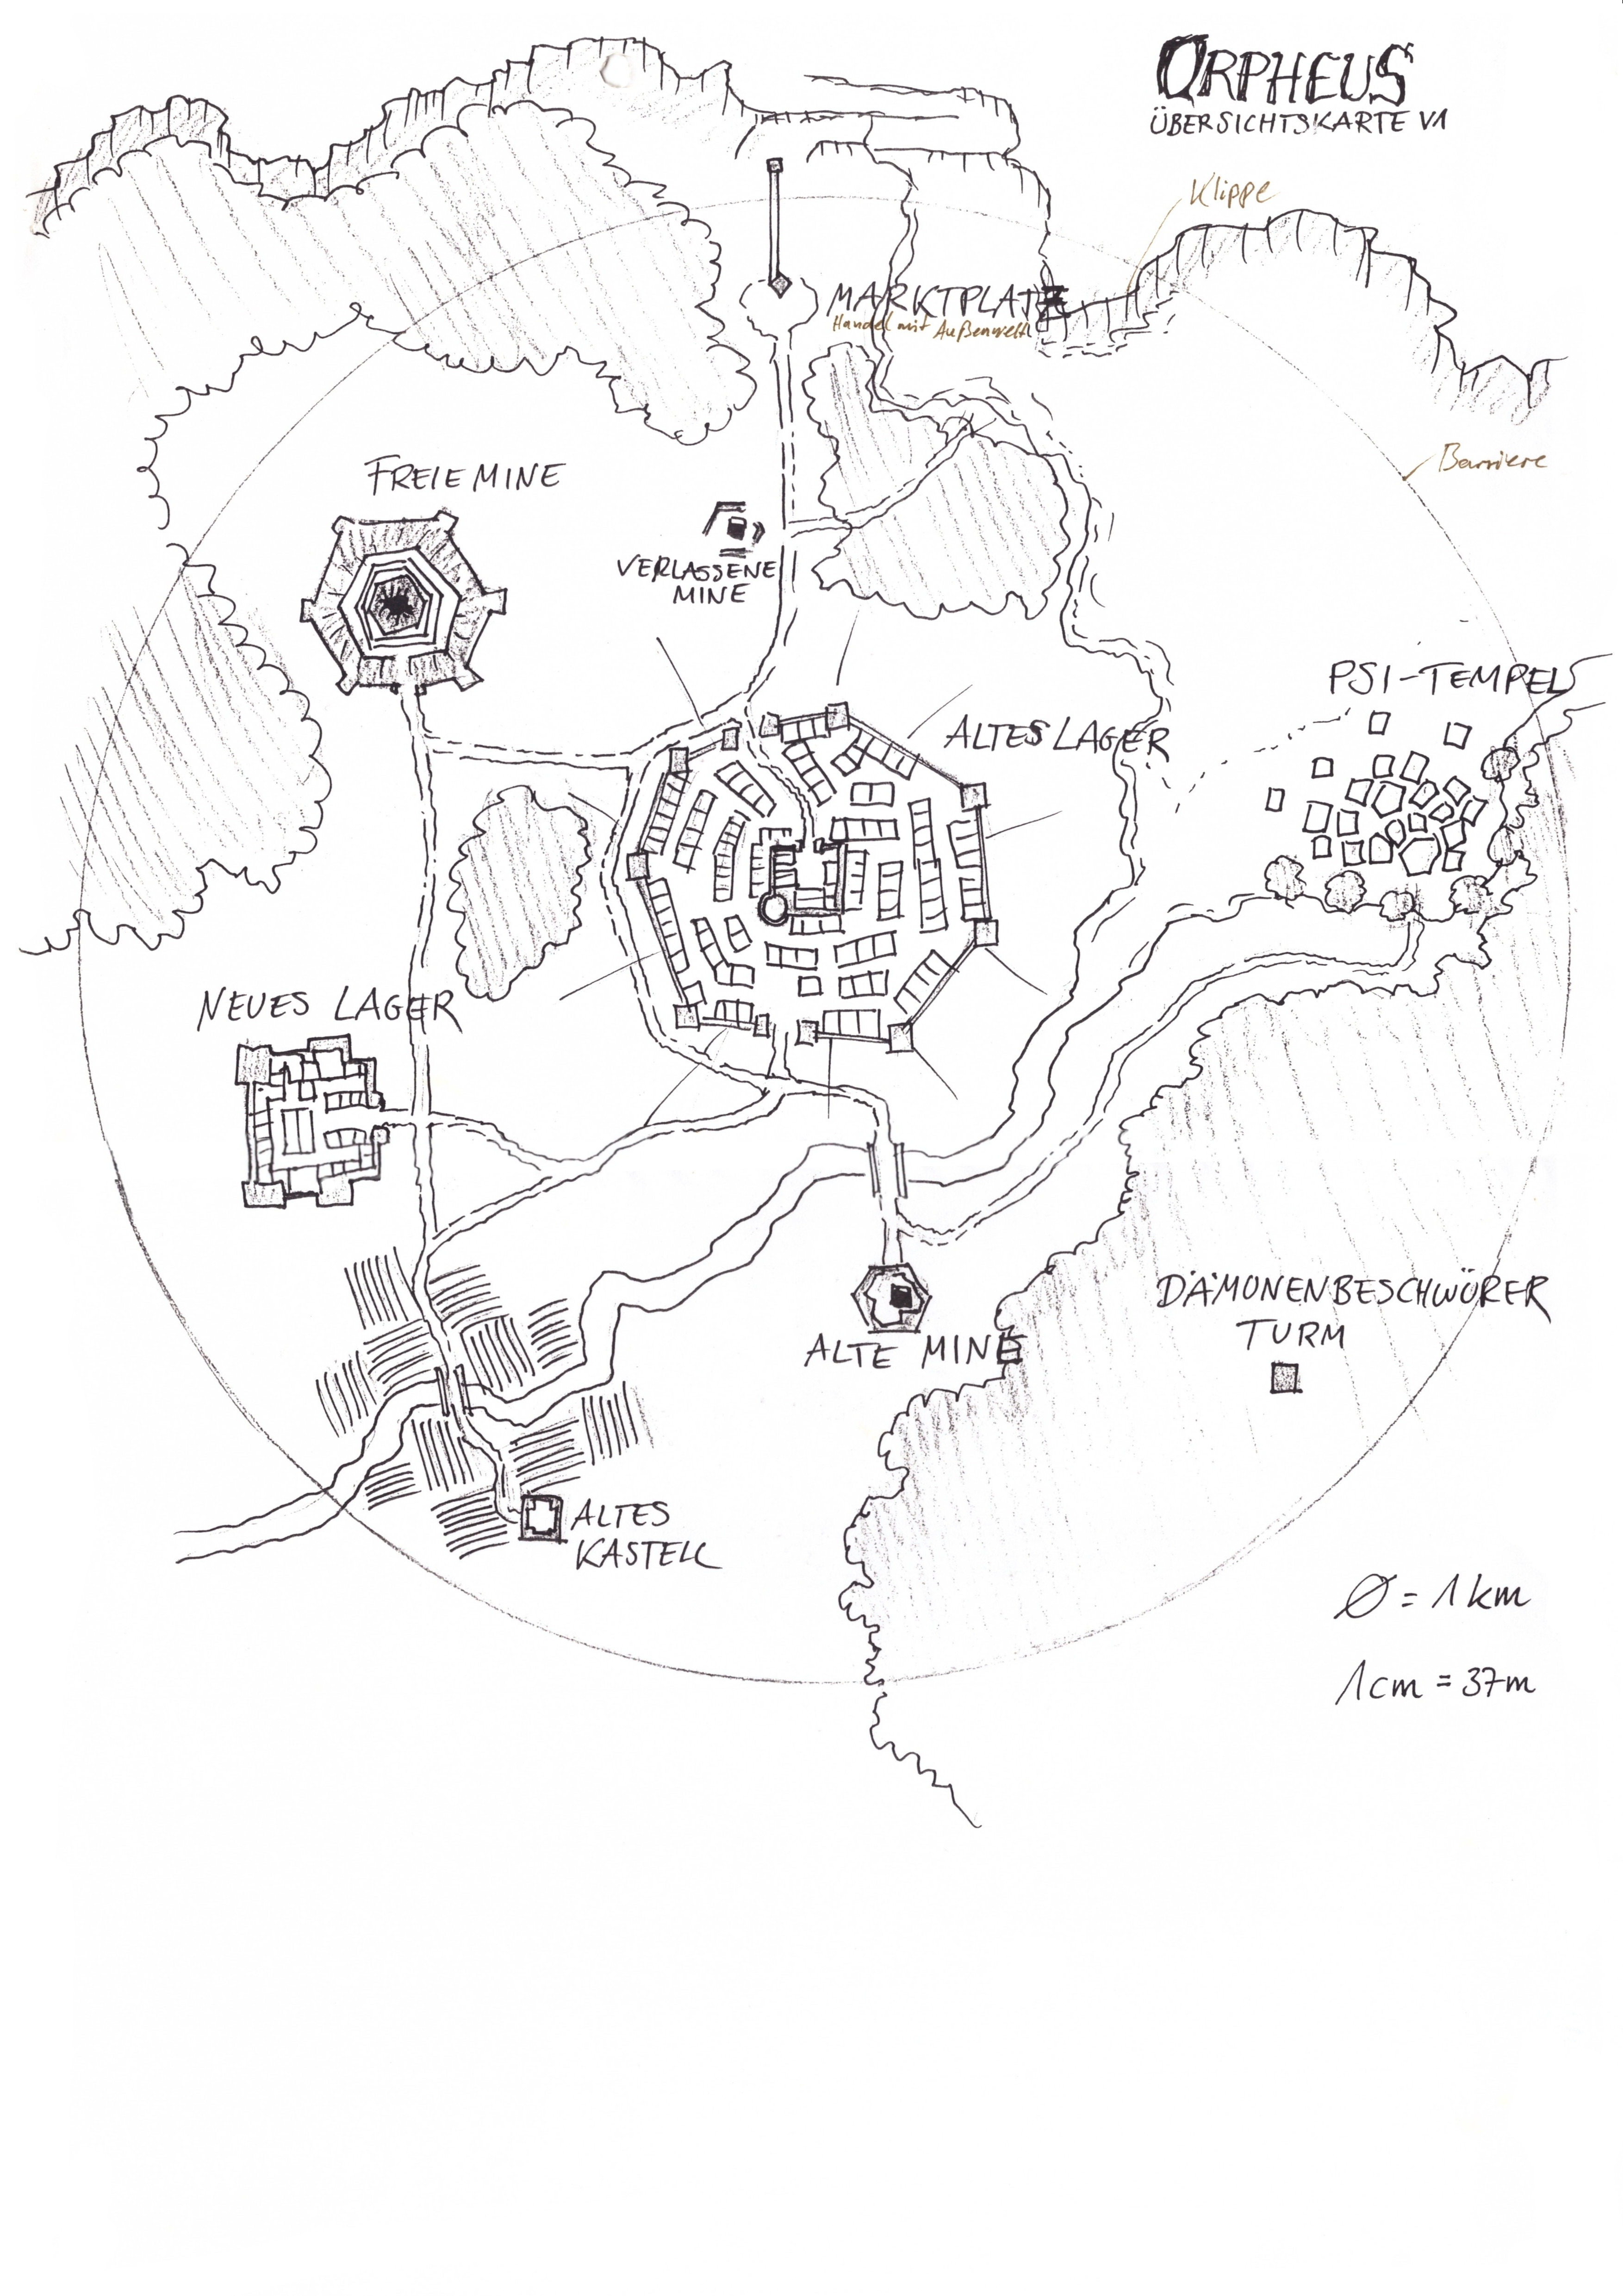 ORPHEUS
ÜBERSICHTSKARTE V1
Klippe
MARKTPLATZ
Handel mit Außenwelt
Barriere
FREIE MINE
VERLASSENE
MINE
PSI-TEMPEL
ALTES LAGER
NEUES LAGER
DÄMONENBESCHWÖRER
TURM
ALTE MINE
ALTES
KASTELL
Ø = 1 km
1 cm = 37 m